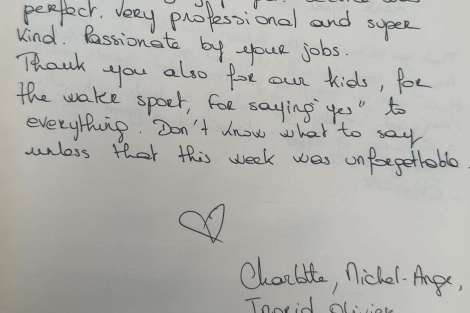 perfect. Very professional and super
kind. Passionate by your jobs.
Thank you also for our kids, for
the wake sport, for saying "yes" to
everything. Don't know what to say
unless that this week was unforgettable
Charlotte, Michel-Ange,
Ingrid Olivier